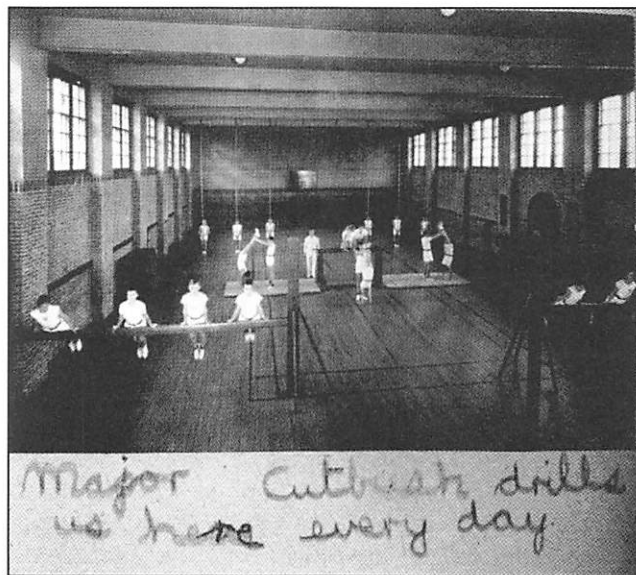 Major Cutbush drills
us here every day